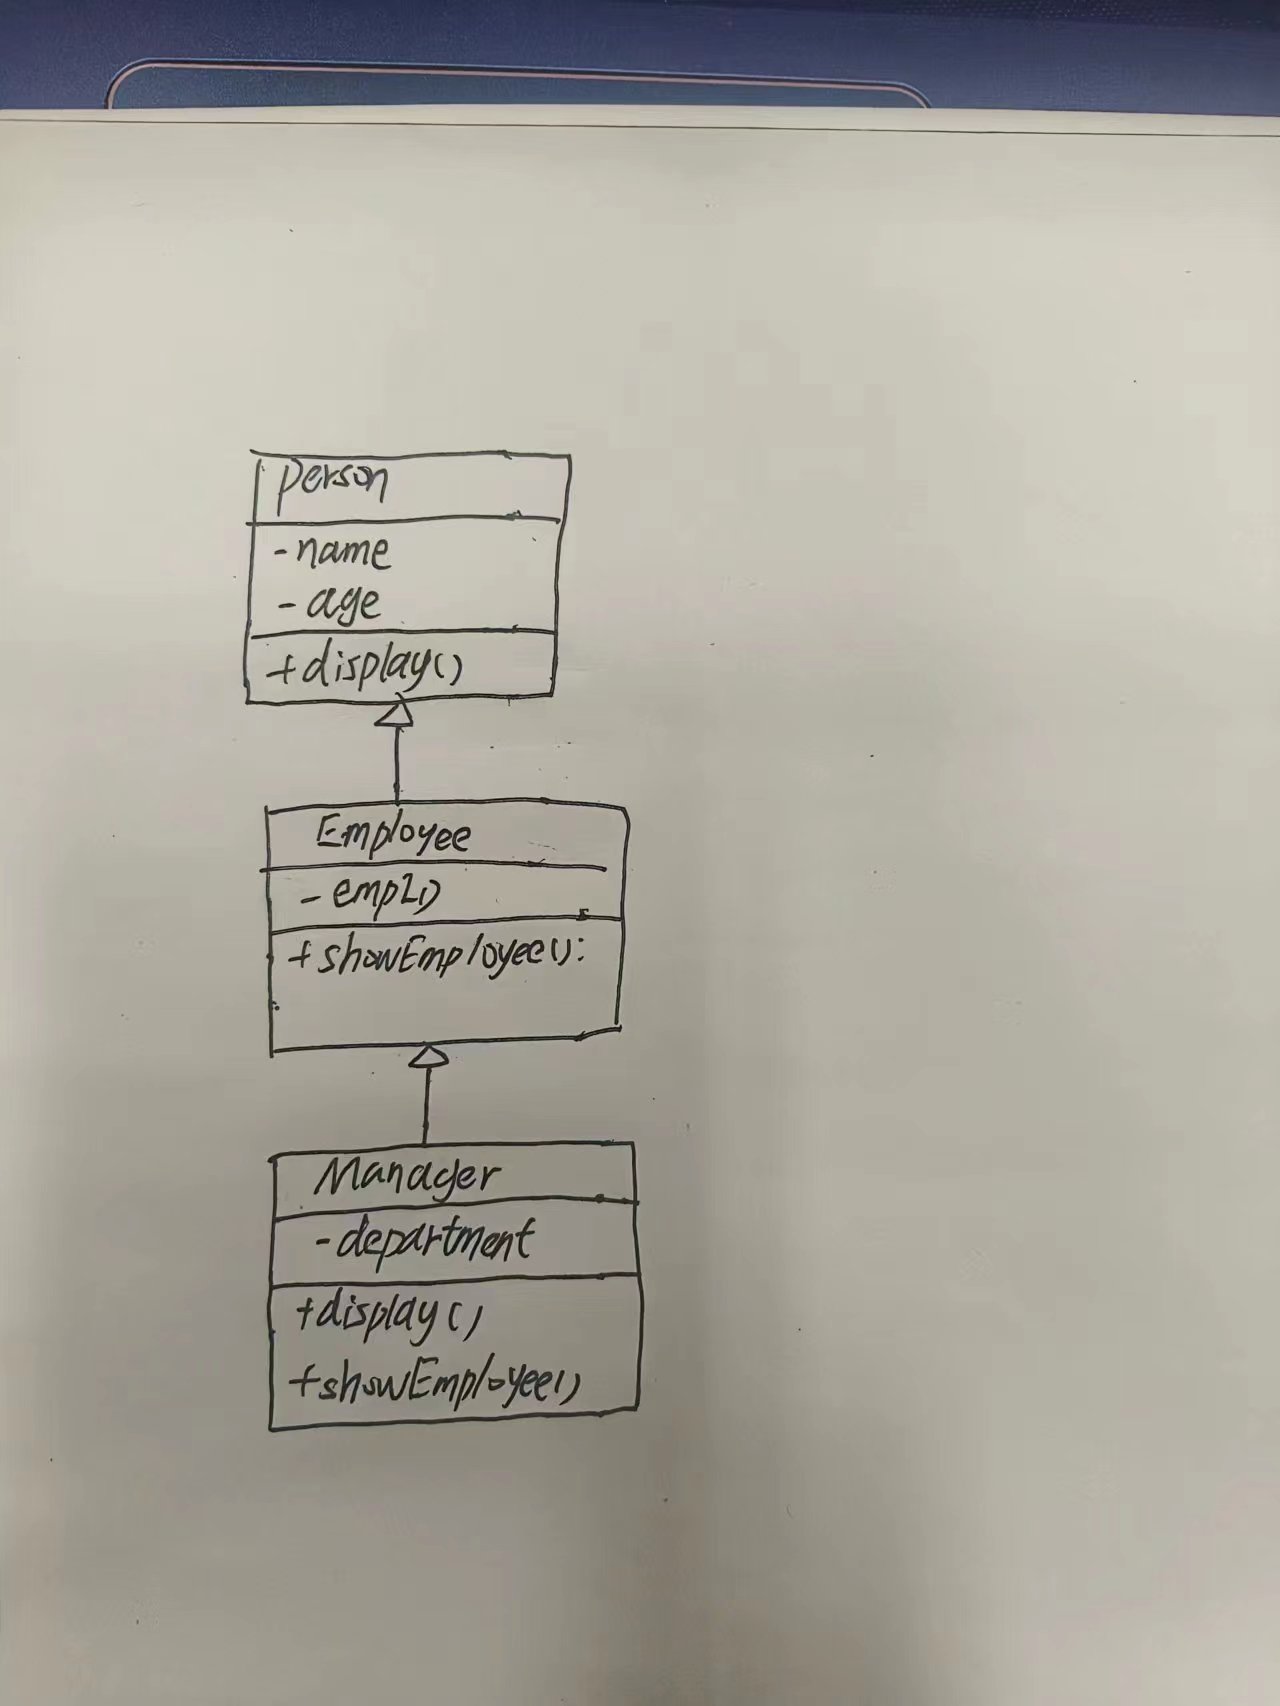 person
-name
- age
+display()
Employee
- empID
+showEmployee():
Manager
-department
+display()
+showEmployee()